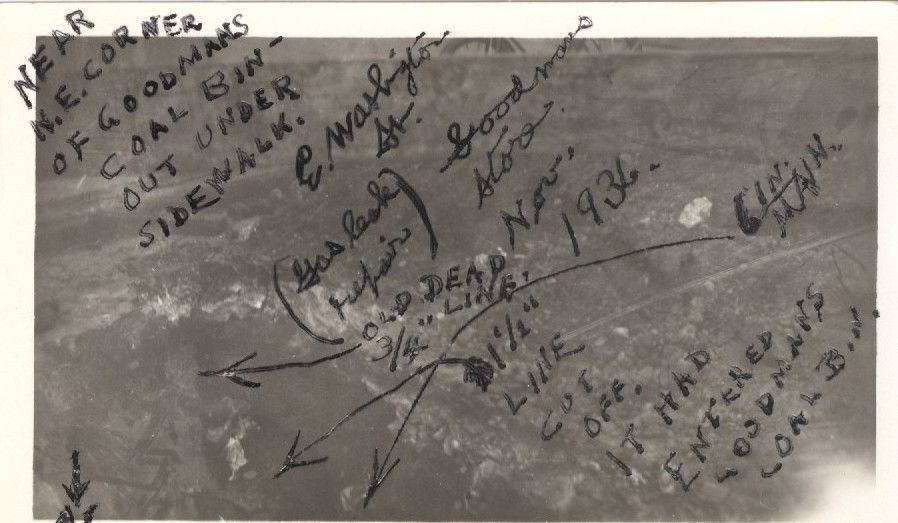 NEAR
N.E. CORNER
OF GOODMANS
COAL BIN-
OUT UNDER
SIDEWALK.
E. Washington
St.
Goodmans
Store.
Nov.
1936.
(Gas leak
repair)
OLD DEAD
3/4" LINE.
6 IN.
MAIN.
1 1/2"
LINE
CUT
OFF.
IT HAD
ENTERED
GOODMANS
COAL BIN.